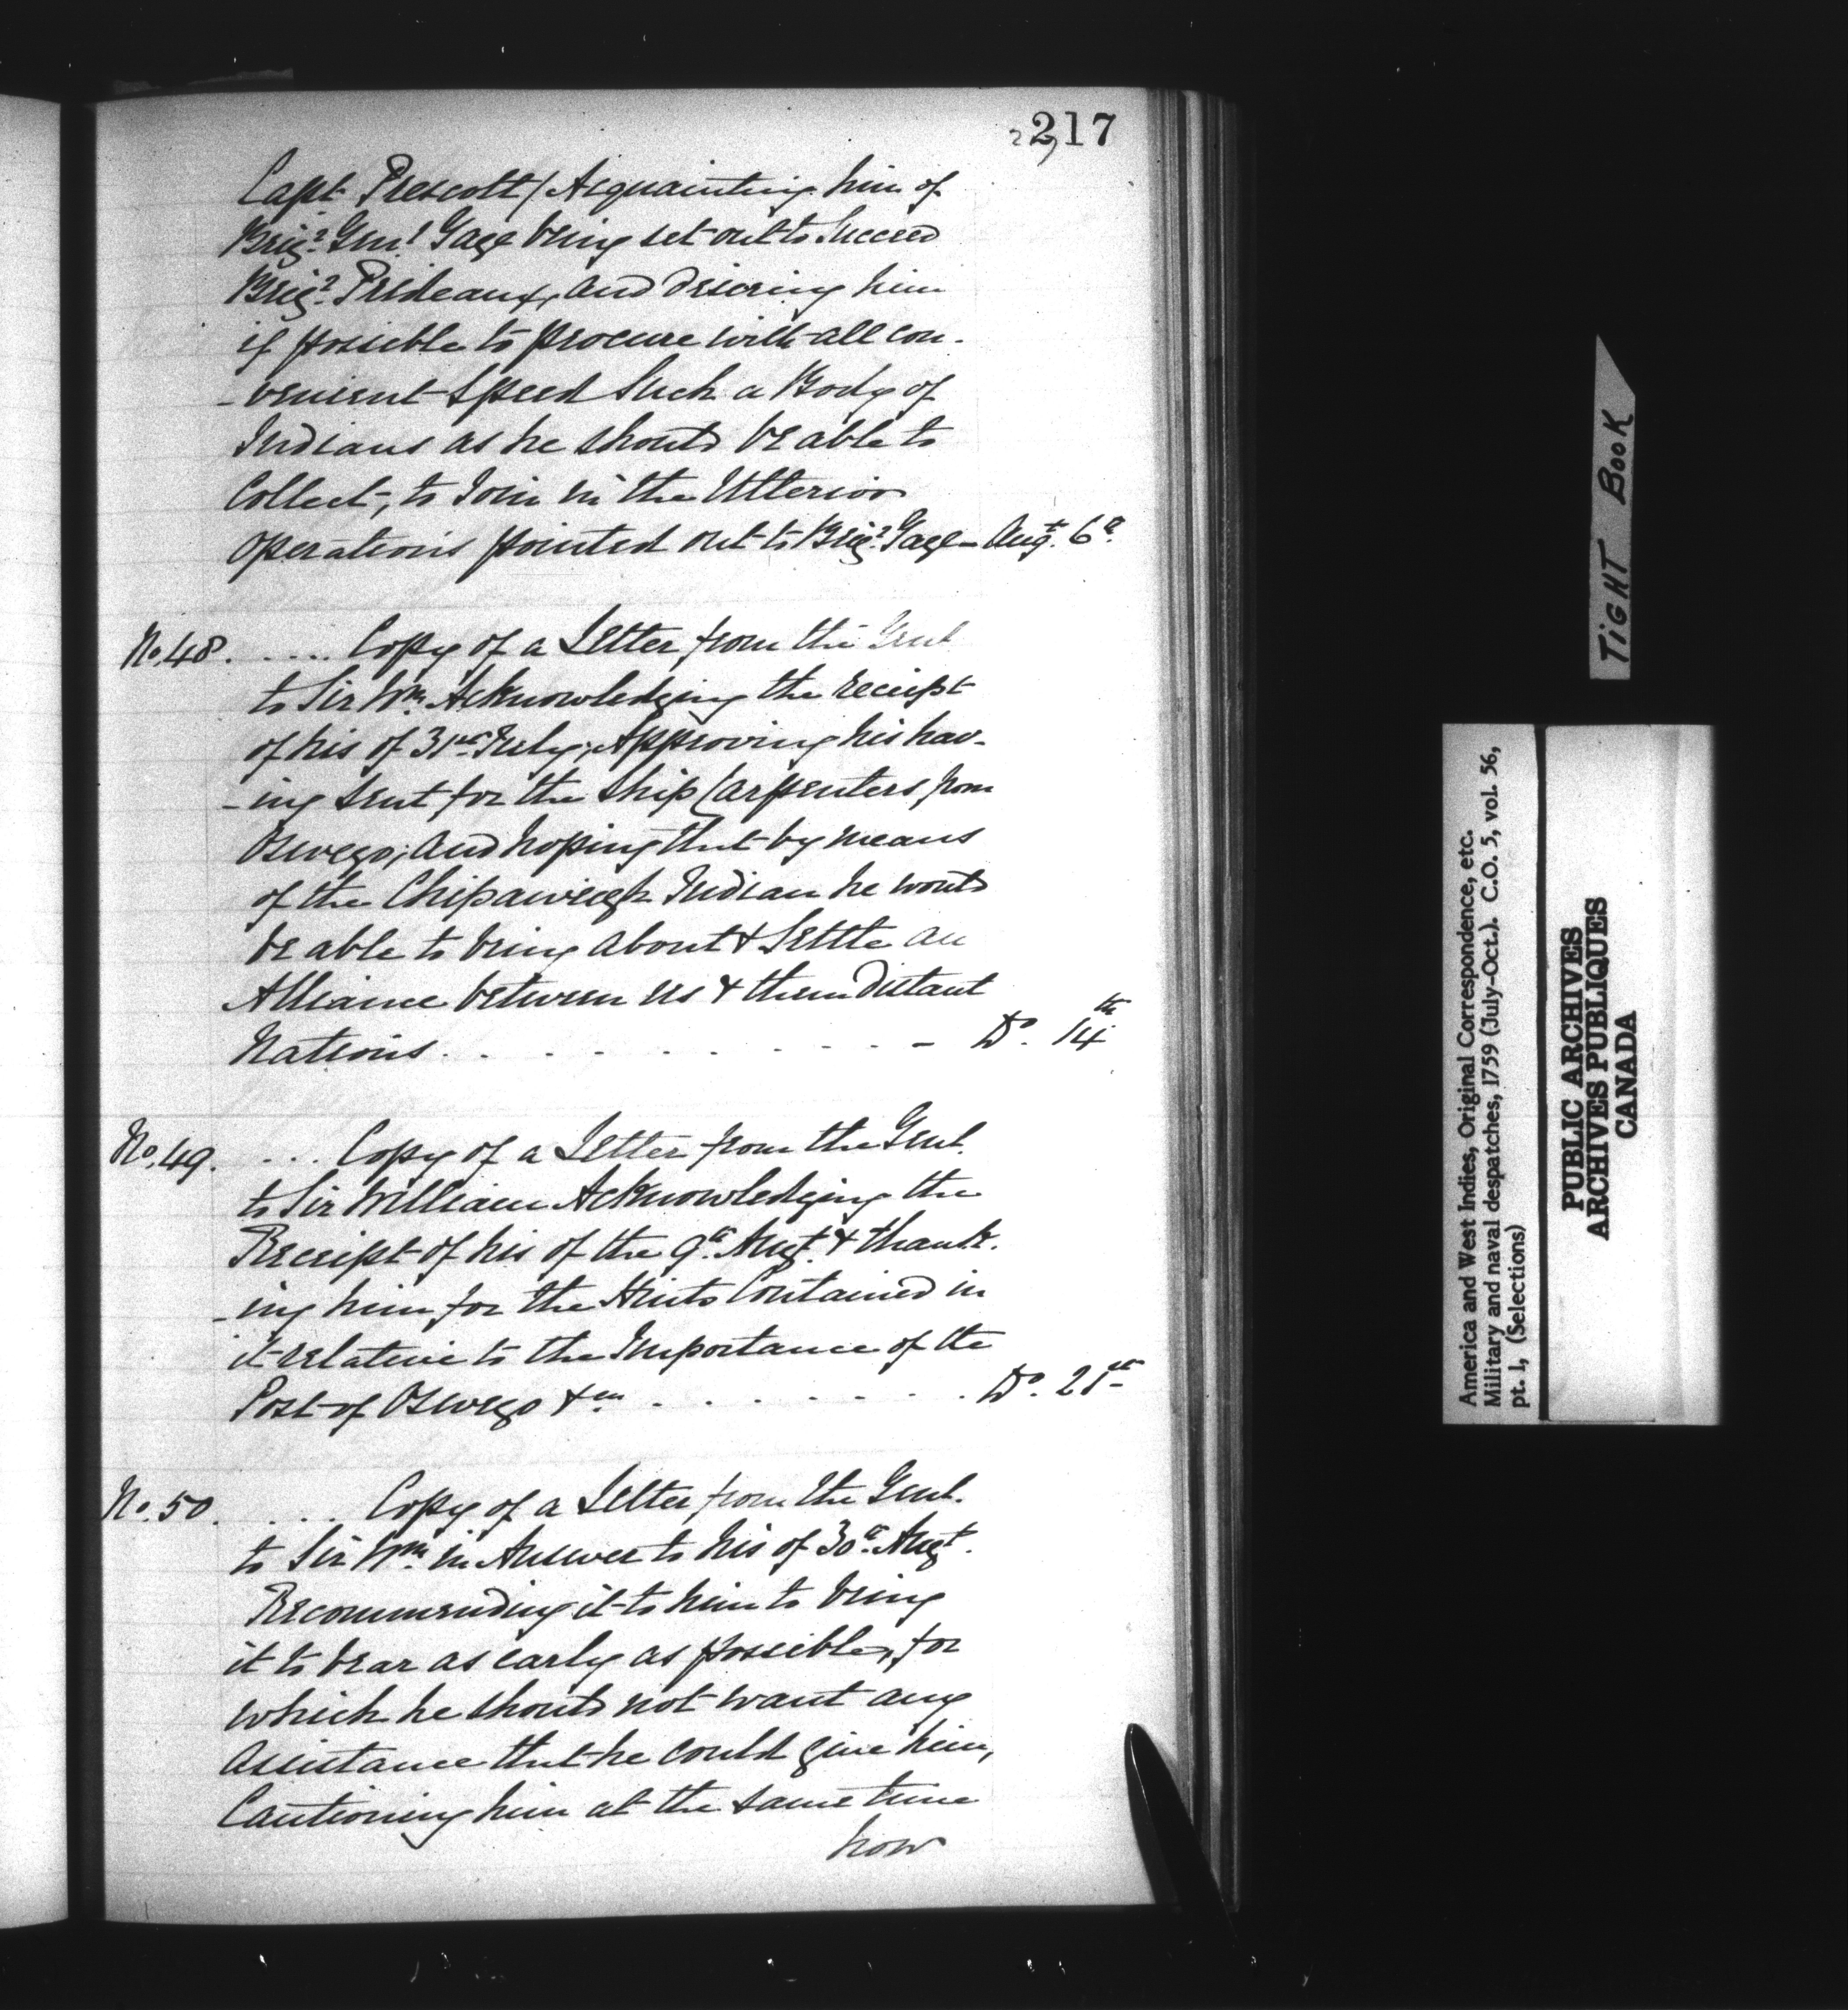 217
Capt Prescott/ Acquainting him of
Brigr. Genl Gage being set out to Succeed
Brigr. Prideaux, and desiring him
if possible to procure with all con-
-venient Speed Such a Body of
Indians as he should be able to
Collect, to Join in the Ulterior
Operations pointed out to Brigr. Gage - Augt. 6th.
No. 48. ..... Copy of a Letter from the Genl
to Sir Wm. Acknowledging the receipt
of his of 31st July; Approving his hav-
-ing sent for the Ship Carpenters from
Oswego; and hoping that by means
of the Chipaweigh Indian he would
be able to bring about & Settle an
Alliance between us & them distant
Nations. . . . . . . . . . . - Do. 14th
No. 49. .... Copy of a Letter from the Genl.
to Sir William Acknowledging the
Receipt of his of the 9th. Augt. & thank-
-ing him for the Hints Contained in
it relative to the Importance of the
Post of Oswego &ca . . . . . . . . Do. 21st
No. 50. .... Copy of a Letter from the Genl.
to Sir Wm. in Answer to his of 30th. Augt.
Recommending it to him to bring
it to bear as early as possible, for
which he should not want any
Assistance that he could give him,
Cautioning him at the same time
how
TIGHT BOOK
America and West Indies, Original Correspondence, etc.
Military and naval despatches, 1759 (July-Oct.). C.O. 5, vol. 56,
pt. 1, (Selections)
PUBLIC ARCHIVES
ARCHIVES PUBLIQUES
CANADA